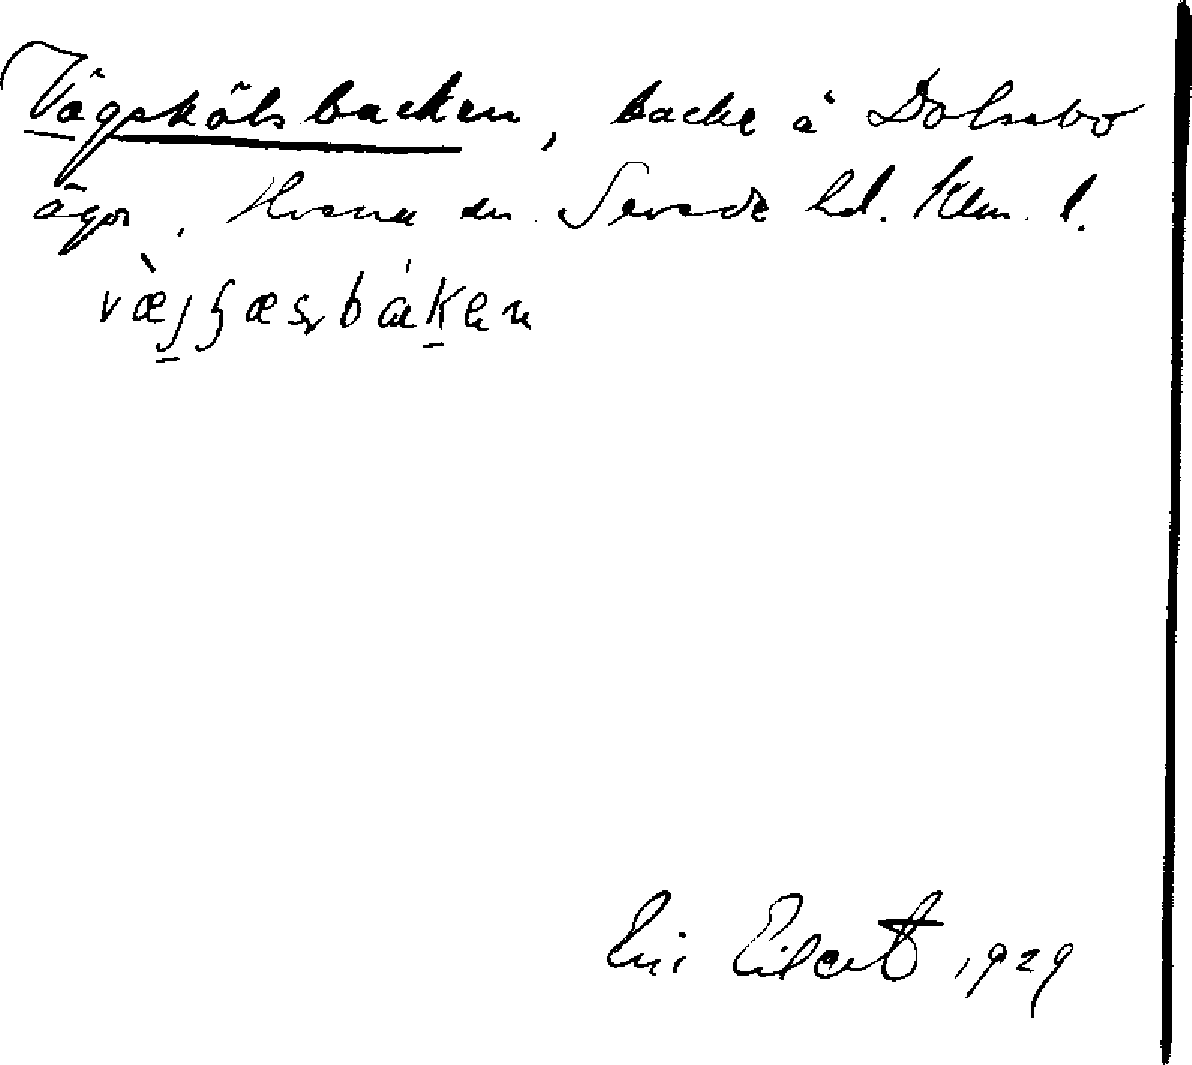 Vägskälsbacken, backe å Dolsebo
ägor, Hvena sn. Sevede hd. Klm. l.
væjʂæsbaken
Eric Eilert 1929